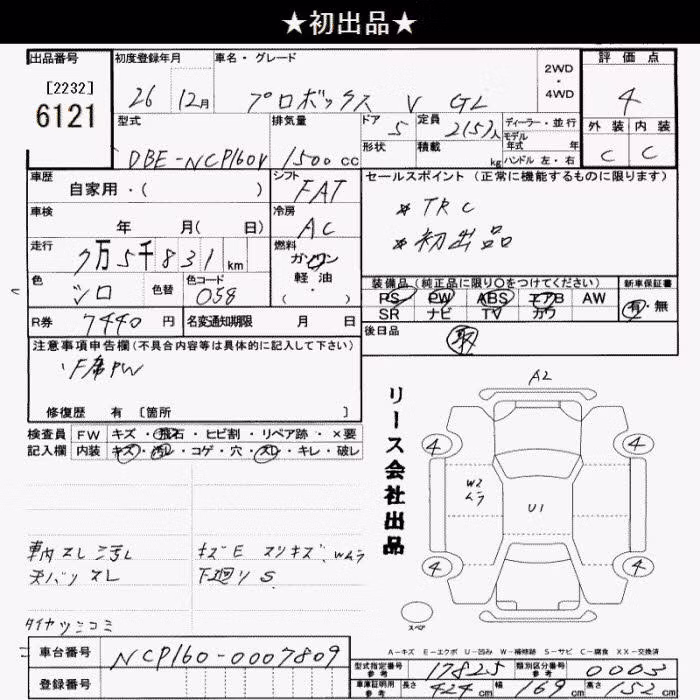 ★初出品★
出品番号 初度登録年月 車名・グレード 2WD・4WD 評価点
[2232]
6121
26 12月 プロボックス V GL 4
型式 排気量 ドア 定員 ディーラー・並行 外装 内装
DBE-NCP160V 1500cc 5 2(5)人 モデル年式 年
形状 積載 kg ハンドル 左・右 C C
車歴 シフト セールスポイント(正常に機能するものに限ります)
自家用・( ) FAT
車検 冷房 ※TRC
年 月( 日) AC ※初出品
走行 燃料
7万5千831km ガソリン
色 色替 色コード 軽油 装備品(純正品に限り○をつけてください) 新車保証書
シロ 058 ( ・ ) PS PW ABS エアB AW 有・無
R券 7440円 名変通知期限 月 日 SR ナビ TV カワ
後日品 取
注意事項申告欄(不具合内容等は具体的に記入して下さい)
F席PW
修復歴 有〔箇所 〕
検査員 FW キズ・飛石・ヒビ割・リペア跡・×要
記入欄 内装 キズ・汚レ・コゲ・穴・スレ・キレ・破レ
リース会社出品
A2
4 4
W2
ムラ
U1
4 4
車内スレ汚レ キズE スリキズ、Wムラ
天バリスレ 下廻りS
スペア
タイヤツミコミ
A-キズ E-エクボ U-凹み W-補修跡 S-サビ C-腐食 XX-交換済
車台番号 NCP160-0007809
型式指定番号 参考 17825 類別区分番号 参考 0003
登録番号
車庫証明用 参考 長さ 424cm 幅 169cm 高さ 152cm